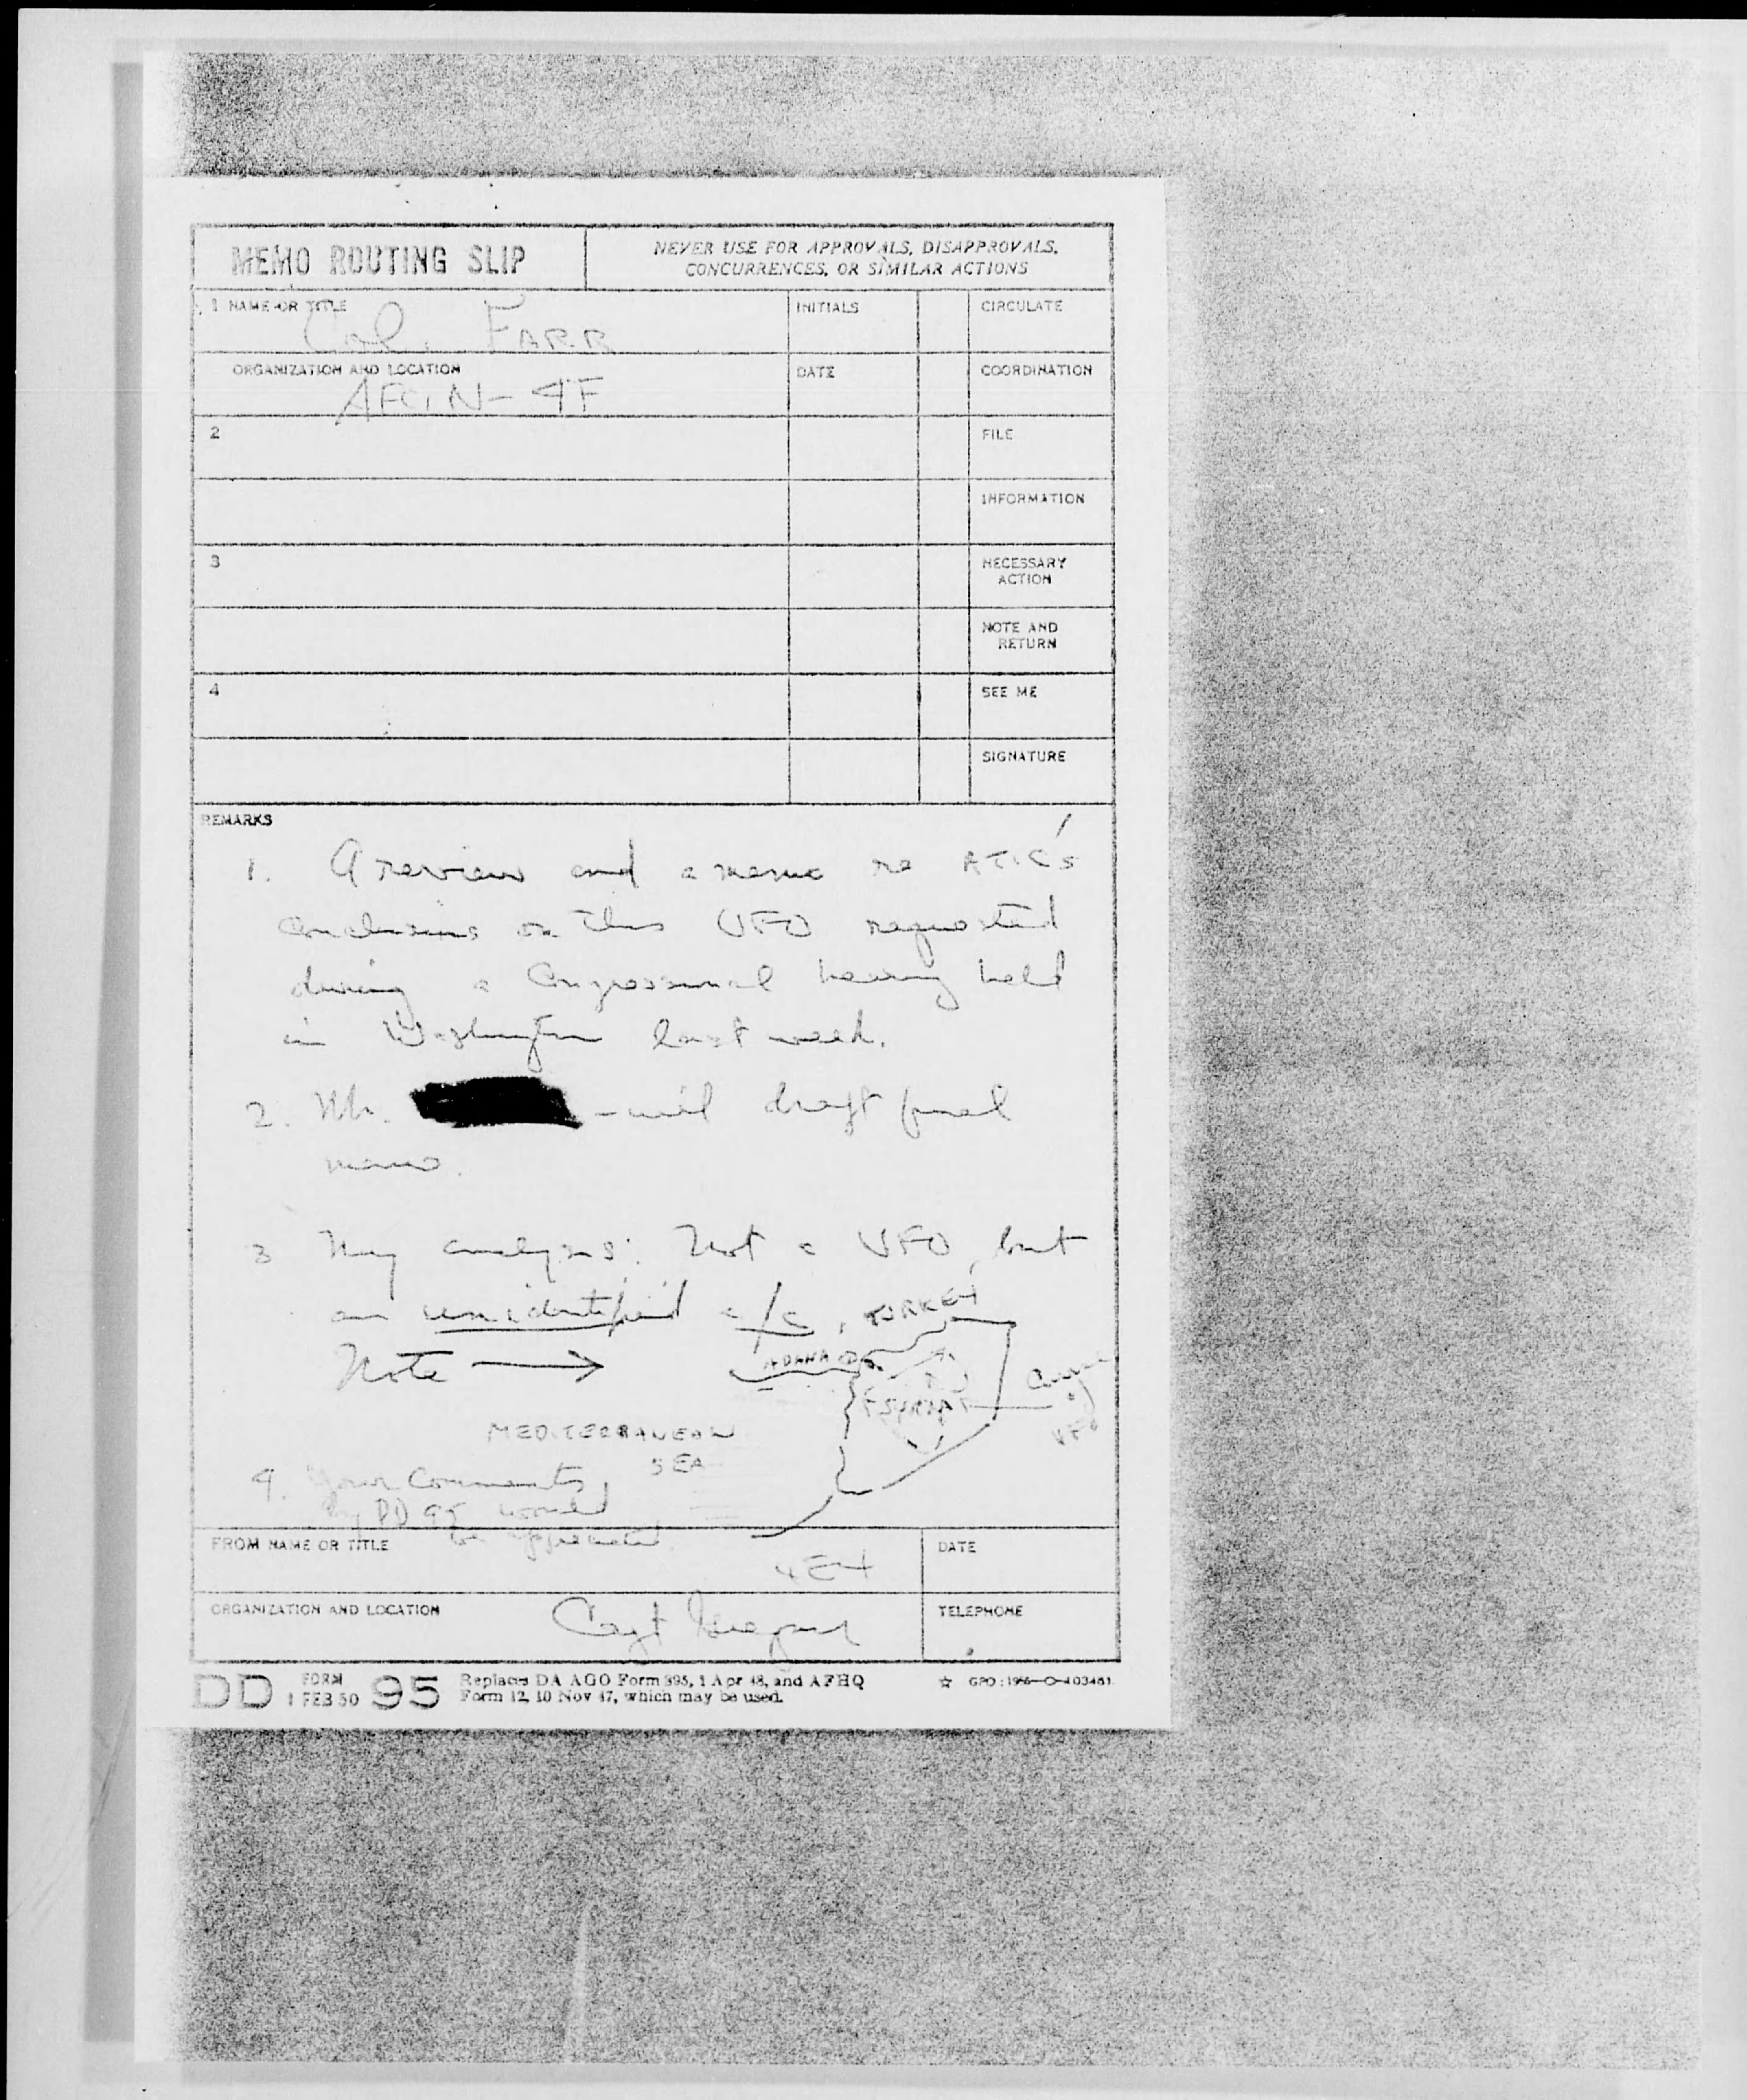 MEMO ROUTING SLIP
NEVER USE FOR APPROVALS, DISAPPROVALS,
CONCURRENCES, OR SIMILAR ACTIONS
1 NAME OR TITLE
Col. FARR
INITIALS
CIRCULATE
ORGANIZATION AND LOCATION
AFCIN-4F
DATE
COORDINATION
2
FILE
INFORMATION
3
NECESSARY
ACTION
NOTE AND
RETURN
4
SEE ME
SIGNATURE
REMARKS
1. A review and a memo re ATIC's
conclusions on this UFO requested
during a Congressional hearing held
in Washington last week.
2. Mr. will draft final
memo.
3 My analysis: Not a UFO, but
an unidentified a/c,
TURKEY
Note →
ADANA
SYRIA
of
UFO
MEDITERRANEAN
SEA
4. Your Comments,
by DD 95 would
be appreciated
FROM NAME OR TITLE
4E4
DATE
ORGANIZATION AND LOCATION
Capt
TELEPHONE
DD FORM 1 FEB 50 95
Replaces DA AGO Form 895, 1 Apr 48, and AFHQ
Form 12, 10 Nov 47, which may be used.
☆ GPO: 1956-O-403461